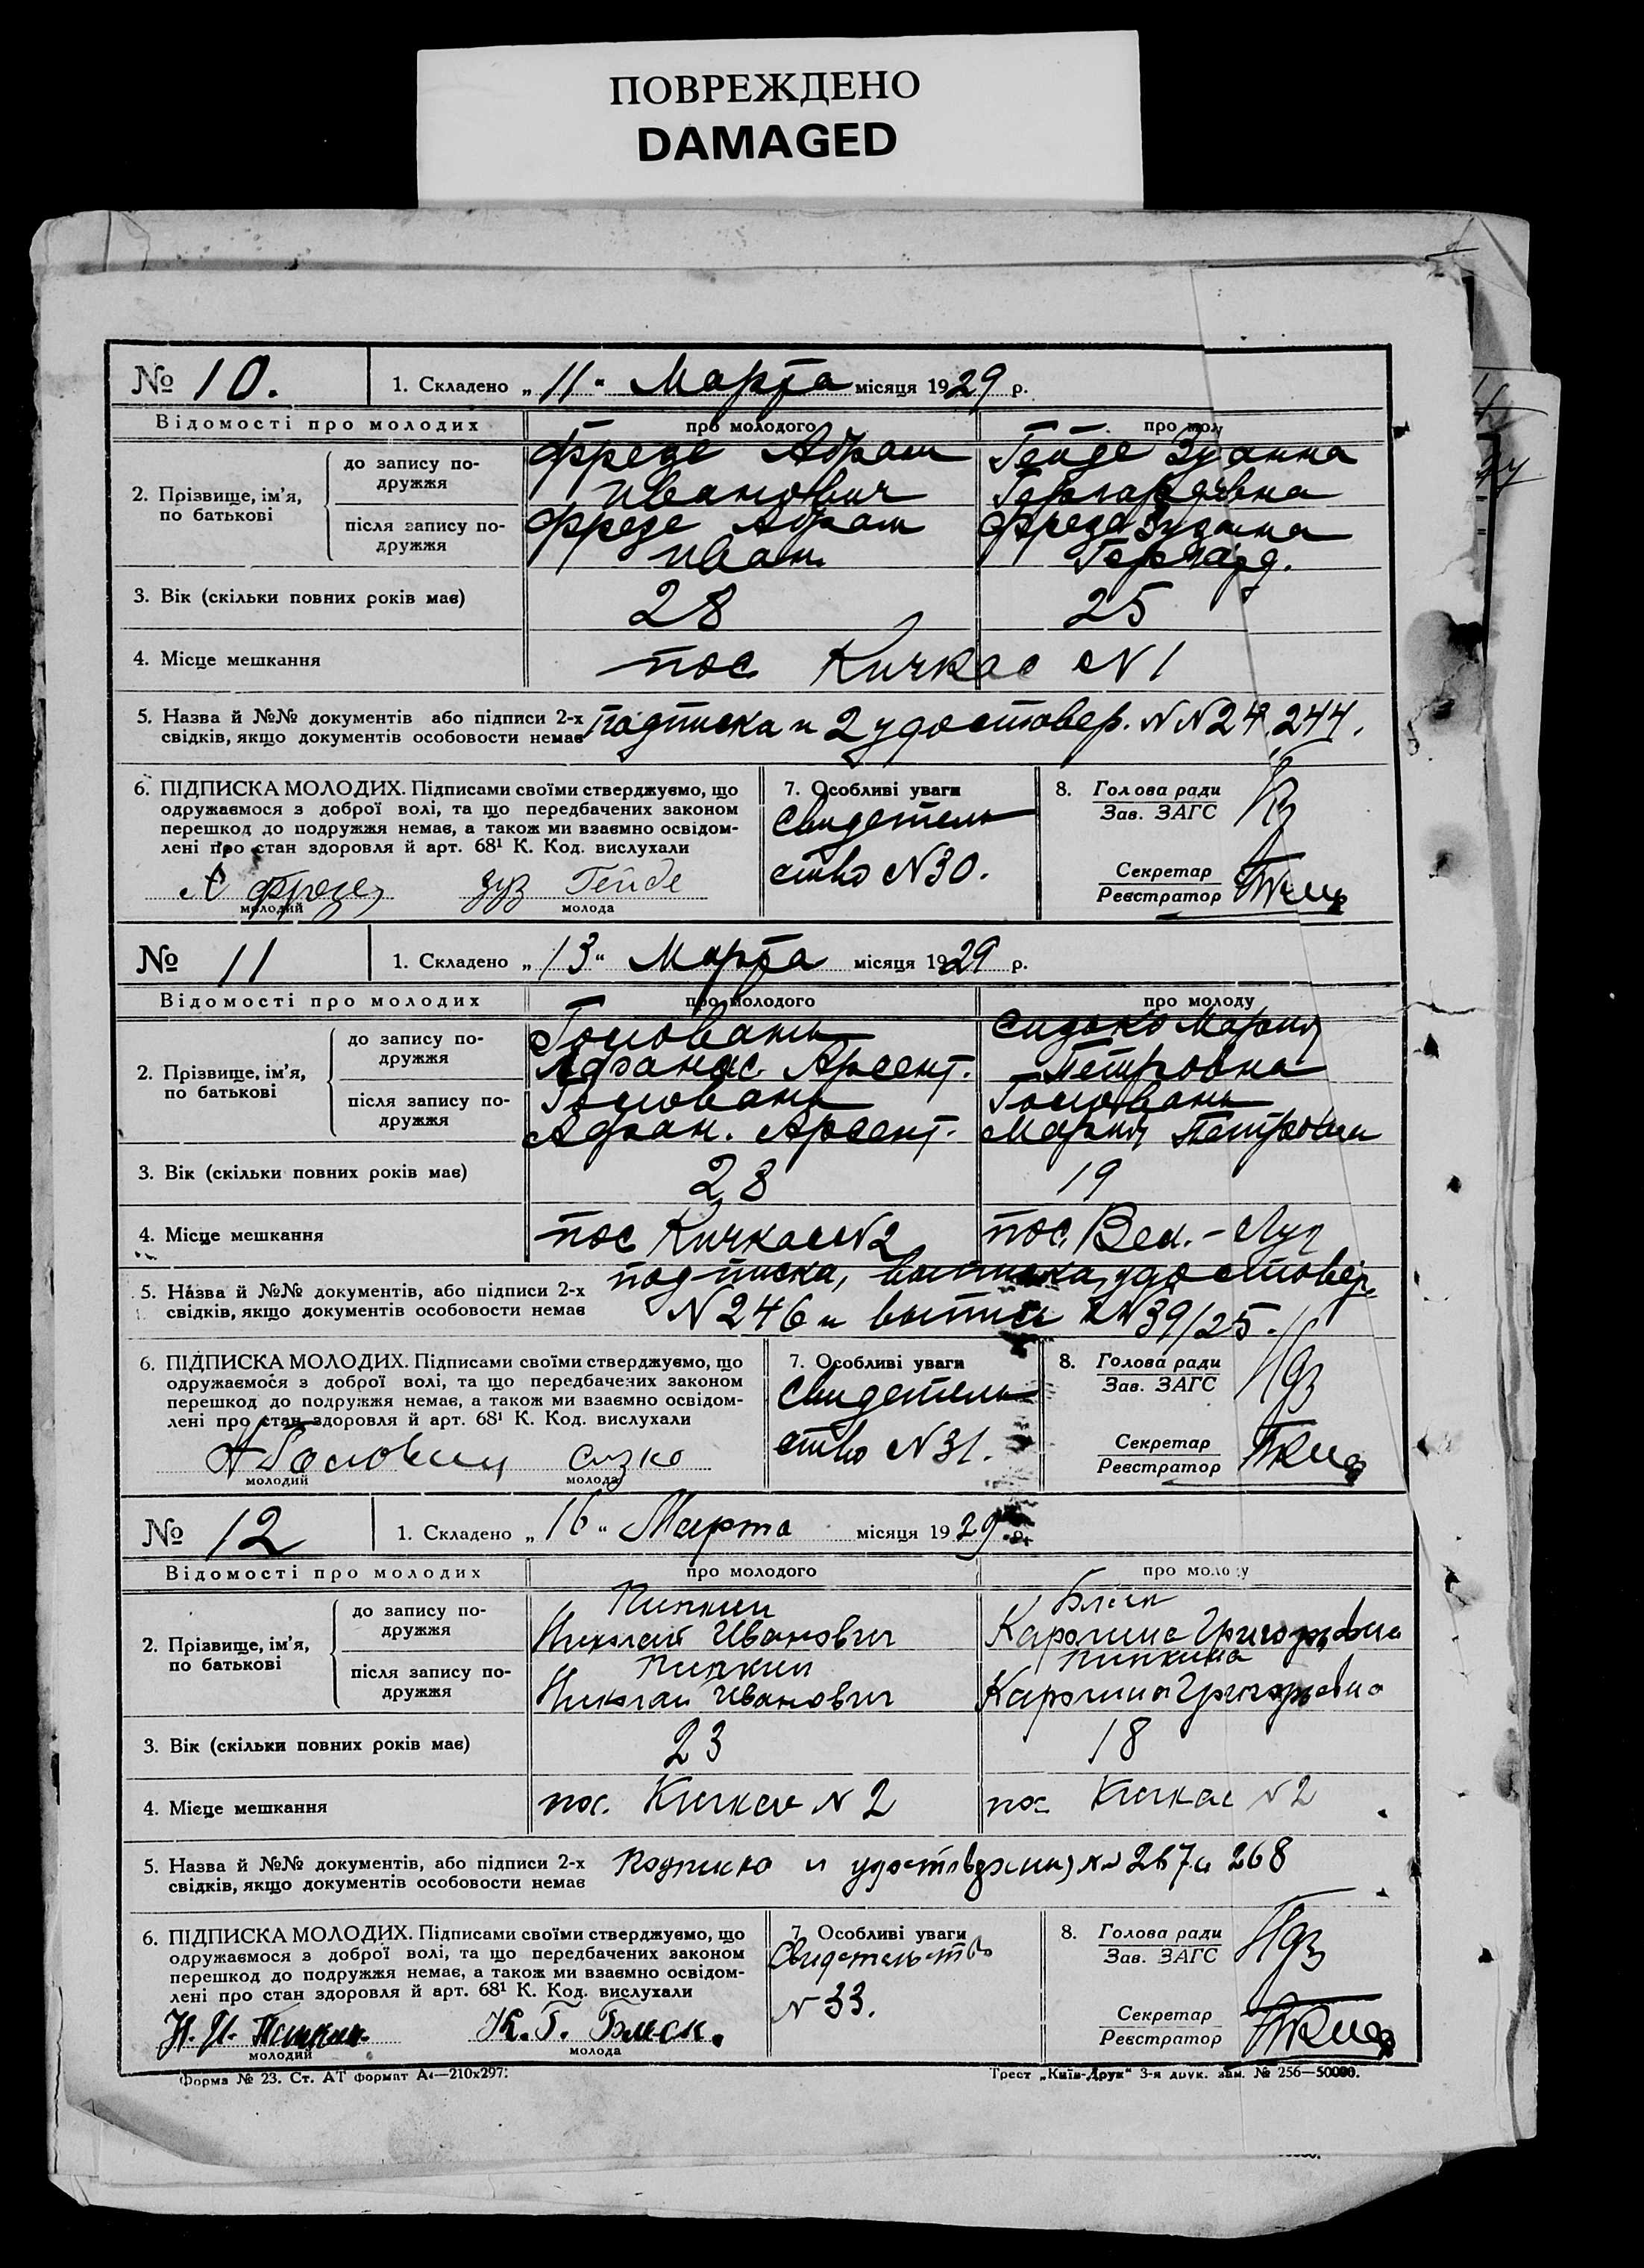 ПОВРЕЖДЕНО
DAMAGED
№ 10. 1. Складено „11“ Марта місяця 1929 р.
Відомості про молодих про молодого про мол
2. Прізвище, ім’я, по батькові
до запису подружжя Фрезе Абрам Гейде Зузанна
Иванович Гергардовна
після запису подружжя Фрезе Абрам Фрезе Зузанна
Иван. Гергард.
3. Вік (скільки повних років має) 28 25
4. Місце мешкання пос Кичкас N 1
5. Назва й №№ документів або підписи 2-х подписка и 2 удостовер. NN 24 244.
свідків, якщо документів особовости немає
6. ПІДПИСКА МОЛОДИХ. Підписами своїми стверджуємо, що
одружаємося з доброї волі, та що передбачених законом
перешкод до подружжя немає, а також ми взаємно освідом-
лені про стан здоровля й арт. 68¹ К. Код. вислухали
А Фрезе Зуз Гейде
молодий молода
7. Особливі уваги
Свидетель
ство N30.
8. Голова ради
Зав. ЗАГС
Секретар
Реєстратор
№ 11 1. Складено „13“ Марта місяця 1929 р.
Відомості про молодих про молодого про молоду
2. Прізвище, ім’я, по батькові
до запису подружжя Головань Сидько Мария
Афанас. Арсент. Петровна
після запису подружжя Головань Головань
Афан. Арсент. Мария Петровна
3. Вік (скільки повних років має) 28 19
4. Місце мешкання пос Кичкас N2 пос. Вел.-Луг
5. Назва й №№ документів, або підписи 2-х подписка, выписка, удостовер.
свідків, якщо документів особовости немає N 246 и выпись N 39/25.
6. ПІДПИСКА МОЛОДИХ. Підписами своїми стверджуємо, що
одружаємося з доброї волі, та що передбачених законом
перешкод до подружжя немає, а також ми взаємно освідом-
лені про стан здоровля й арт. 68¹ К. Код. вислухали
молодий молода
7. Особливі уваги
Свидетель
ство N31.
8. Голова ради
Зав. ЗАГС
Секретар
Реєстратор
№ 12 1. Складено „16“ Марта місяця 1929 р.
Відомості про молодих про молодого про молоду
2. Прізвище, ім’я, по батькові
до запису подружжя Пипкин
Николай Иванович Каролина Григорьевна
після запису подружжя Пипкин Пипкина
Николай Иванович Каролина Григорьевна
3. Вік (скільки повних років має) 23 18
4. Місце мешкання пос. Кичкас N 2 пос Кичкас N 2
5. Назва й №№ документів, або підписи 2-х Подписка и удостоверения NN 267 и 268
свідків, якщо документів особовости немає
6. ПІДПИСКА МОЛОДИХ. Підписами своїми стверджуємо, що
одружаємося з доброї волі, та що передбачених законом
перешкод до подружжя немає, а також ми взаємно освідом-
лені про стан здоровля й арт. 68¹ К. Код. вислухали
молодий молода
7. Особливі уваги
Свидетельство
N 33.
8. Голова ради
Зав. ЗАГС
Секретар
Реєстратор
Форма № 23. Ст. АТ формат А4—210x297. Трест „Київ-Друк“ 3-я друк. зам. № 256—50000.